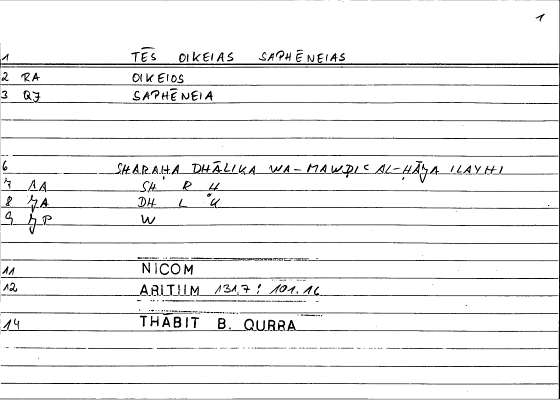 1
1 TĒS OIKEIAS SAPHĒNEIAS
2 RA OIKEIOS
3 QJ SAPHĒNEIA
6 SHARAḤA DHĀLIKA WA-MAWḌIʿ AL-ḤĀǦA ILAYHI
7 AA SH R Ḥ
8 ǦA DH L K
9 ǦP W
11 NICOM
12 ARITIIM 131,7 : 101.16
14 THĀBIT B. QURRA